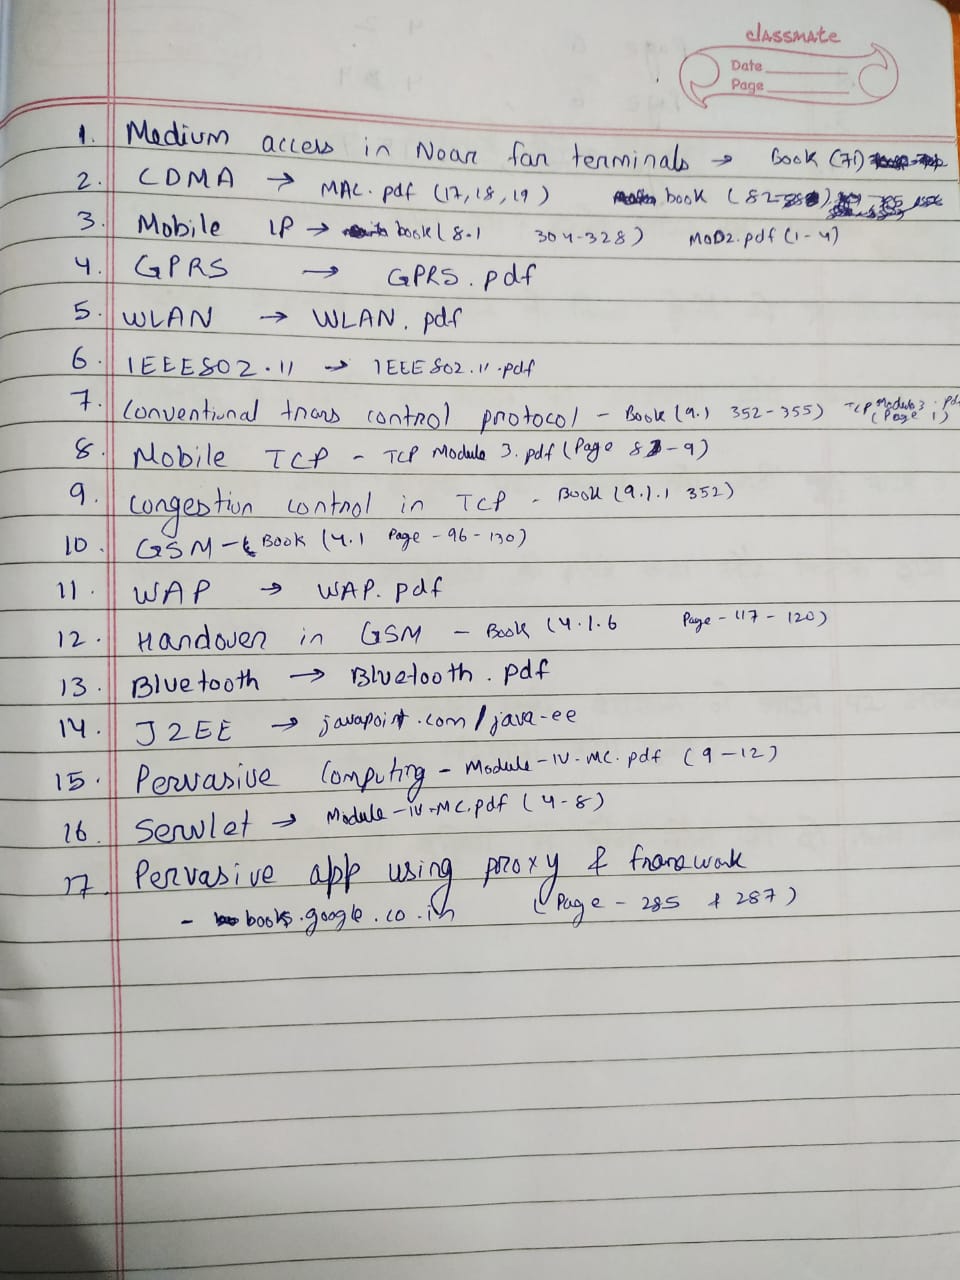 classmate
Date
Page
1. Medium access in Near far terminals → Book (71)
2. CDMA → MAC.pdf (17,18,19) book (82-
3. Mobile IP → book (8.1 304-328) MOD2.pdf (1-4)
4. GPRS → GPRS.pdf
5. WLAN → WLAN.pdf
6. IEEE802.11 → IEEE802.11.pdf
7. Conventional trans control protocol - Book (9.1 352-355) TCP Module 3.pdf (Page 1)
8. Mobile TCP - TCP Module 3.pdf (Page 8 -9)
9. Congestion control in TCP - Book (9.1.1 352)
10. GSM - Book (4.1 Page - 96-130)
11. WAP → WAP.pdf
12. Handover in GSM - Book (4.1.6 Page - 117 - 120)
13. Bluetooth → Bluetooth.pdf
14. J2EE → javapoint.com/java-ee
15. Pervasive Computing - Module-IV-MC.pdf (9-12)
16. Servlet → Module-IV-MC.pdf (4-8)
17. Pervasive app using proxy & framework
- books.google.co.in (Page - 285 & 287)